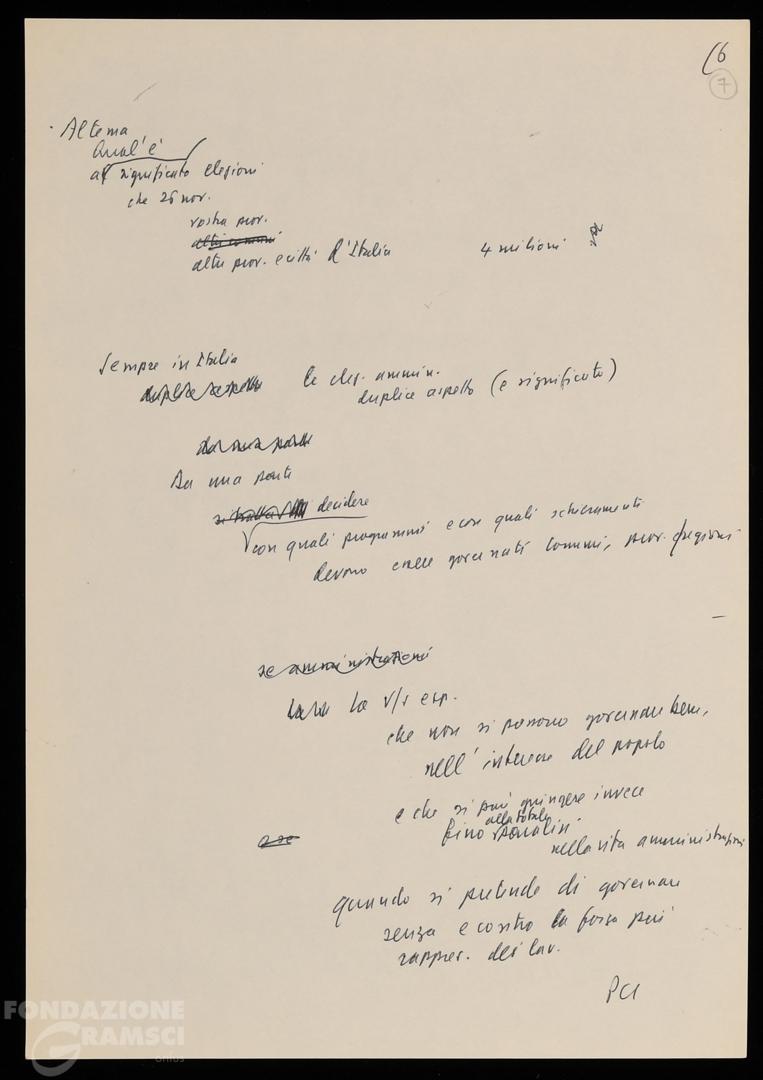 (6
7
Al tema
Qual'è
al significato elezioni
che 26 nov.
vostra prov.
altri comuni
altre prov. e città d'Italia 4 milioni
Sempre in Italia
duplice aspetto le elez. ammin.
duplice aspetto (e significato)
da una parte
Da una parte
si tratta decidere
con quali programmi e con quali schieramenti
devono essere governati comuni, prov. regioni
se amministrazioni
la v/s esp.
che non si possono governare bene,
nell'interesse del popolo
e che si può giungere invece
alla totale
fino paralisi
nella vita amministrazioni
e se
quando si pretende di governare
senza e contro la forza più
rappres. dei lav.
PCI
FONDAZIONE
GRAMSCI
onlus